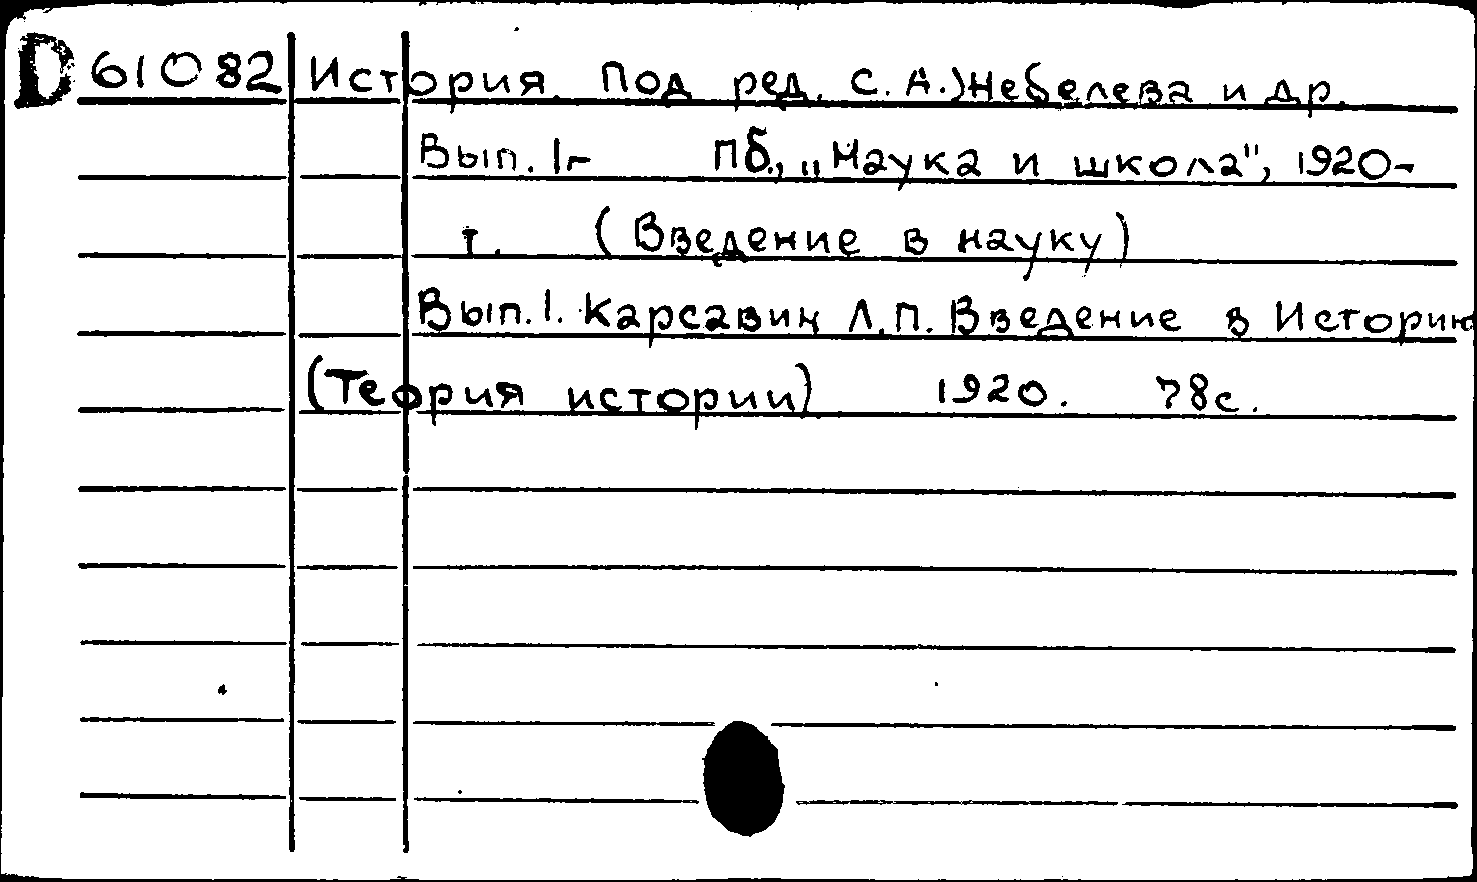 D 61082 История. Под ред. С. А. Жебелева и др.
Вып. 1- Пб., „Наука и школа", 1920-
т. (Введение в науку)
Вып. 1. Карсавин Л.П. Введение в Историю
(Теория истории) 1920. 78с.